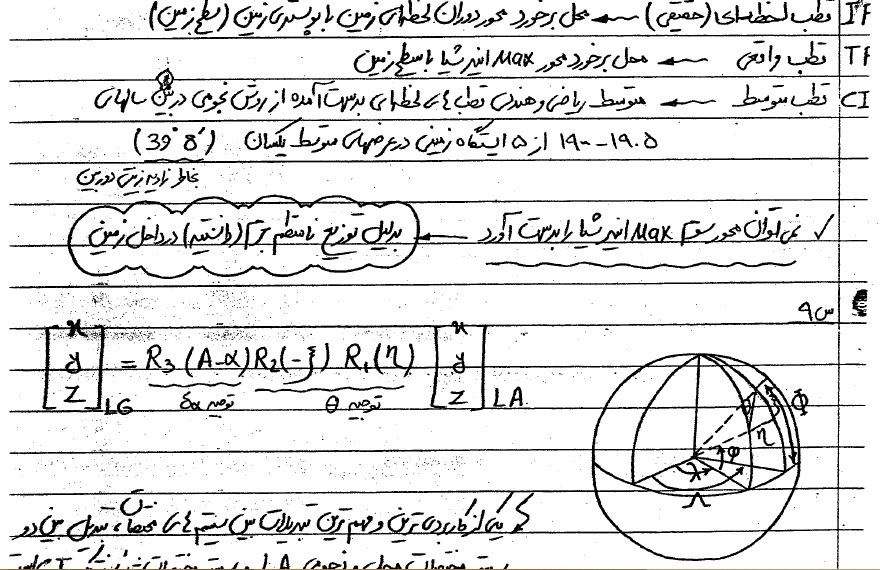 IP قطب لحظه‌ای (حقیقی) ← محل برخورد محور دوران لحظه‌ای زمین با پوسته‌ی زمین (سطح زمین)
TP قطب واقعی ← محل برخورد محور Max اینرشیا با سطح زمین
CI قطب متوسط ← متوسط ریاضی و هندسی قطب های لحظه‌ای بدست آمده از روش نجومی در بین سالهای
۱۹۰۰-۱۹۰۵ از ۵ ایستگاه زمینی در عرضهای متوسط یکسان (39° 8′)
بخاطر زاویه زنیتی دوربین
✓ نمی توان محور سوم Max اینرشیا را بدست آورد ← بدلیل توزیع نامنظم جرم (دانسیته) در داخل زمین
س ۹
[x y z] LG = R₃ (A-α) R₂(-ξ) R₁(η) [x y z] LA
توجیه δα توجیه θ
Φ φ η ξ λ Λ
یکی از کاربردی ترین و مهم ترین تبدیلات بین سیستم های مختصات، تبدیل بین دو